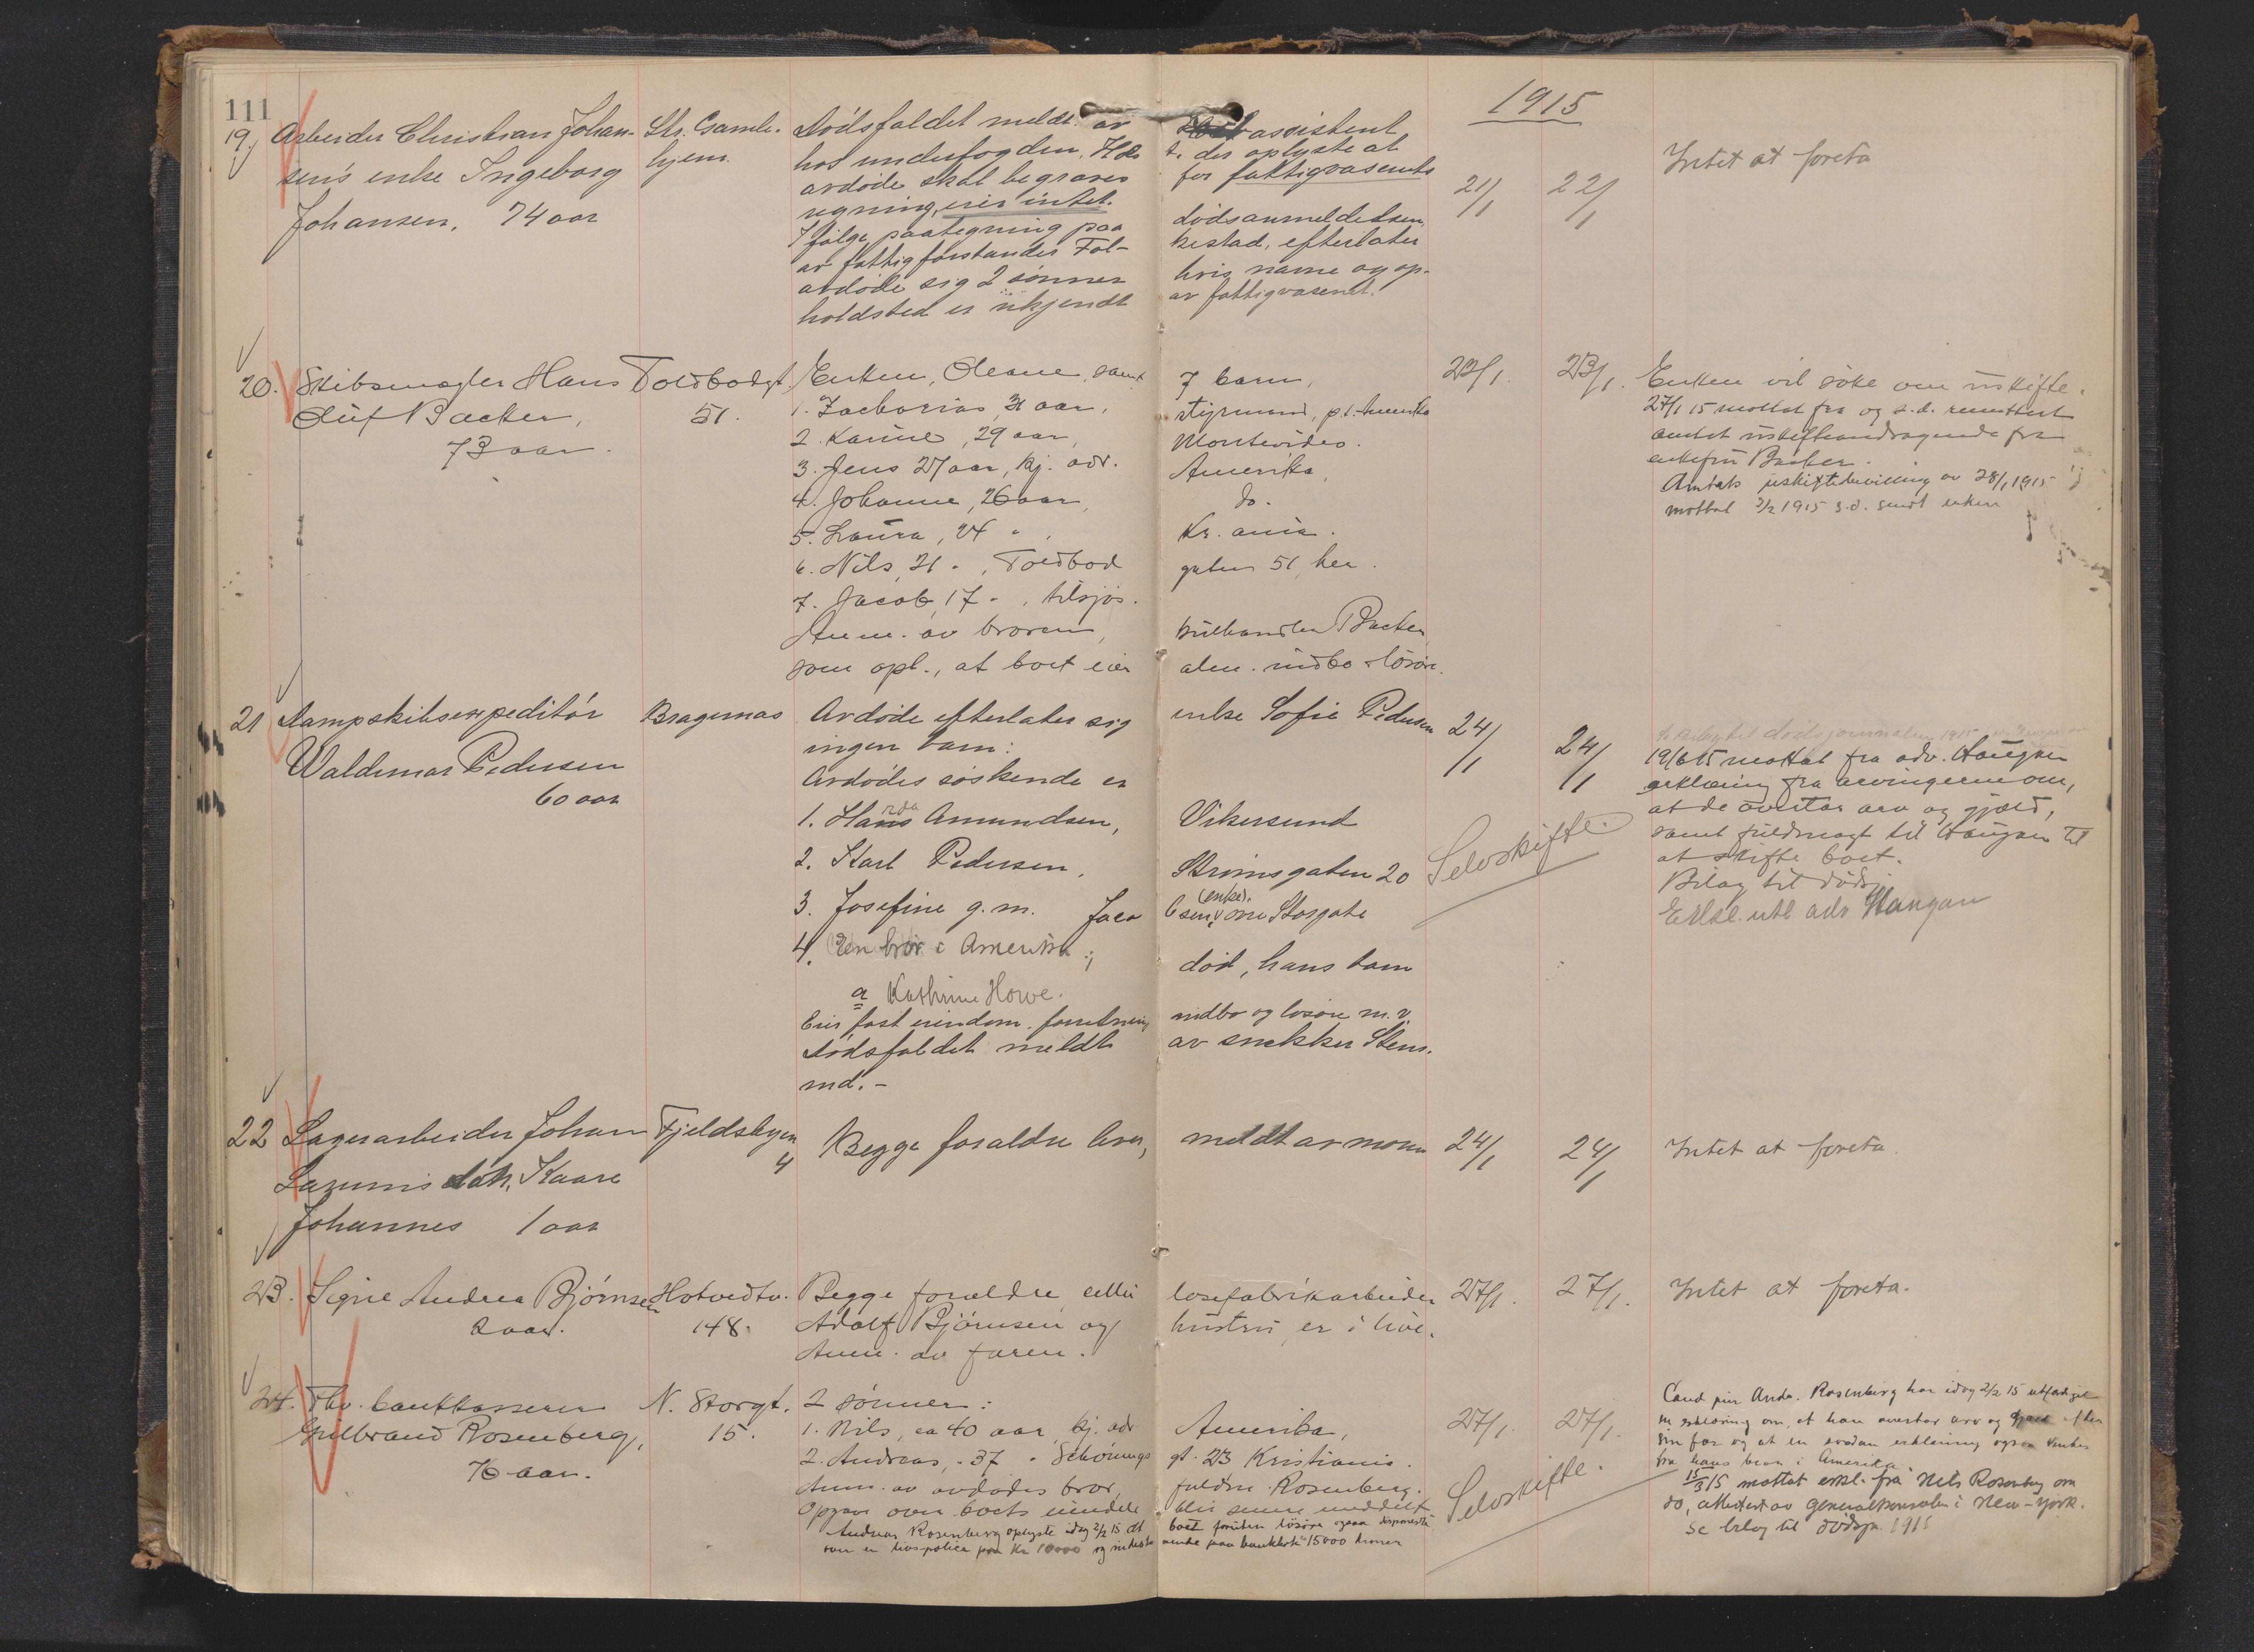 111
1915
19. Arbeider Christian Johan-
sen's enke Ingeborg
Johansen, 74 aar
Str. Gamle-
hjem.
Dödsfaldet meldt av assistent
hos underfogden, der oplyste at
avdöde skal begraves for fattigvæsenets
regning, eier intet.
Ifölge paategning paa dödsanmeldelsen
av fattigforstander Fal-kestad, efterlater
avdöde sig 2 sönner hvis navne og op-
holdsted er ukjendt av fattigvæsenet.
21/1
22/1
Intet at foreta
20. Skibsmægler Hans
Oluf Backer,
73 aar.
Toldbodgt.
51.
Enken, Oleane, samt 7 barn,
1. Zacharias, 31 aar, styrmand, p.t. Amerika
2. Karine, 29 aar, Montevideo.
3. Jens 27 aar, kj. adr. Amerika,
4. Johanne, 26 aar, do.
5. Laura, 24 " , Kr.ania.
6. Nils, 21 " , Toldbodgaten 51, her.
7. Jacob, 17 " , tilsjös.
Anm. av broren, kulhandler Backer
som opl., at boet eier alm. indbo & lösöre.
23/1.
23/1.
Enken vil söke om uskifte.
27/1 15 mottat fra og s.d. remittert
amtet uskifteandragende fra
enkefru Backer.
Amtets uskiftebevilling av 28/1 1915
mottat 2/2 1915 s.d. sendt enken
21 Dampskibsexpeditör
Waldemar Pedersen
60 aar
Bragernæs
Avdöde efterlater sig enke Sofie Pedersen
ingen barn:
Avdödes söskende er
1. Hans Amundsen, Vikersund
2. Karl Pedersen, Strömsgaten 20
3. Josefine g.m. Jacobsen, (enke). övre Storgate
4. En bror i Amerika; död, hans barn
a Kathrine Howe.
Eier fast eiendom, forretning indbo og lösöre m.v.
Dödsfaldet meldt av snekker Stens-
rud.-
24/1
24/1
Selvskifte.
19/6 15 mottat fra adv. Haugan
erklæring fra arvingerne om,
at de overtar arv og gjæld,
samt fuldmagt til Haugan til
at skifte boet.
Bilag til dödsj.
Erkl. utl. adv Haugan
22 Lagerarbeider Johan
Lazunis sön, Kaare
Johannes 1 aar
Fjeldsbyen
4
Begge foraldre lever, meldt av moren
24/1
24/1
Intet at foreta.
23. Signe Andrea Björnsen
2 aar.
Hotvedtv.
148.
Begge foraldre, cellulosefabrikarbeider
Adolf Björnsen og hustru, er i live.
Anm. av faren.
27/1.
27/1.
Intet at foreta.
24. Fhv. bankkasserer
Gulbrand Rosenberg,
76 aar.
N. Storgt.
15.
2 sönner:
1. Nils, ca 40 aar, kj. adr. Amerika,
2. Andreas, " 37 " Schöningsgt. 23 Kristiania.
Anm. av avdödes bror, fuldm. Rosenberg.
Opgave over boets eiendele blir senere meddelt
Andreas Rosenberg oplyste idag 2/2 15 at boet foruten lösöre ogsaa disponerte
over en livspolice paa Kr 10000 og indestaaende paa bankbok 15000 kroner
27/1.
27/1.
Selvskifte.
Cand jur Andr. Rosenberg har idag 2/2 15 utfærdiget
en erklæring om, at han overtar arv og gjæld efter
sin far og at en saadan erklæring ogsaa ventes
fra hans bror i Amerika.
15/3 15 mottat erkl. fra Nils Rosenberg om
do, attestert av generalkonsulen i New-York.
Se bilag til dödsjr. 1915